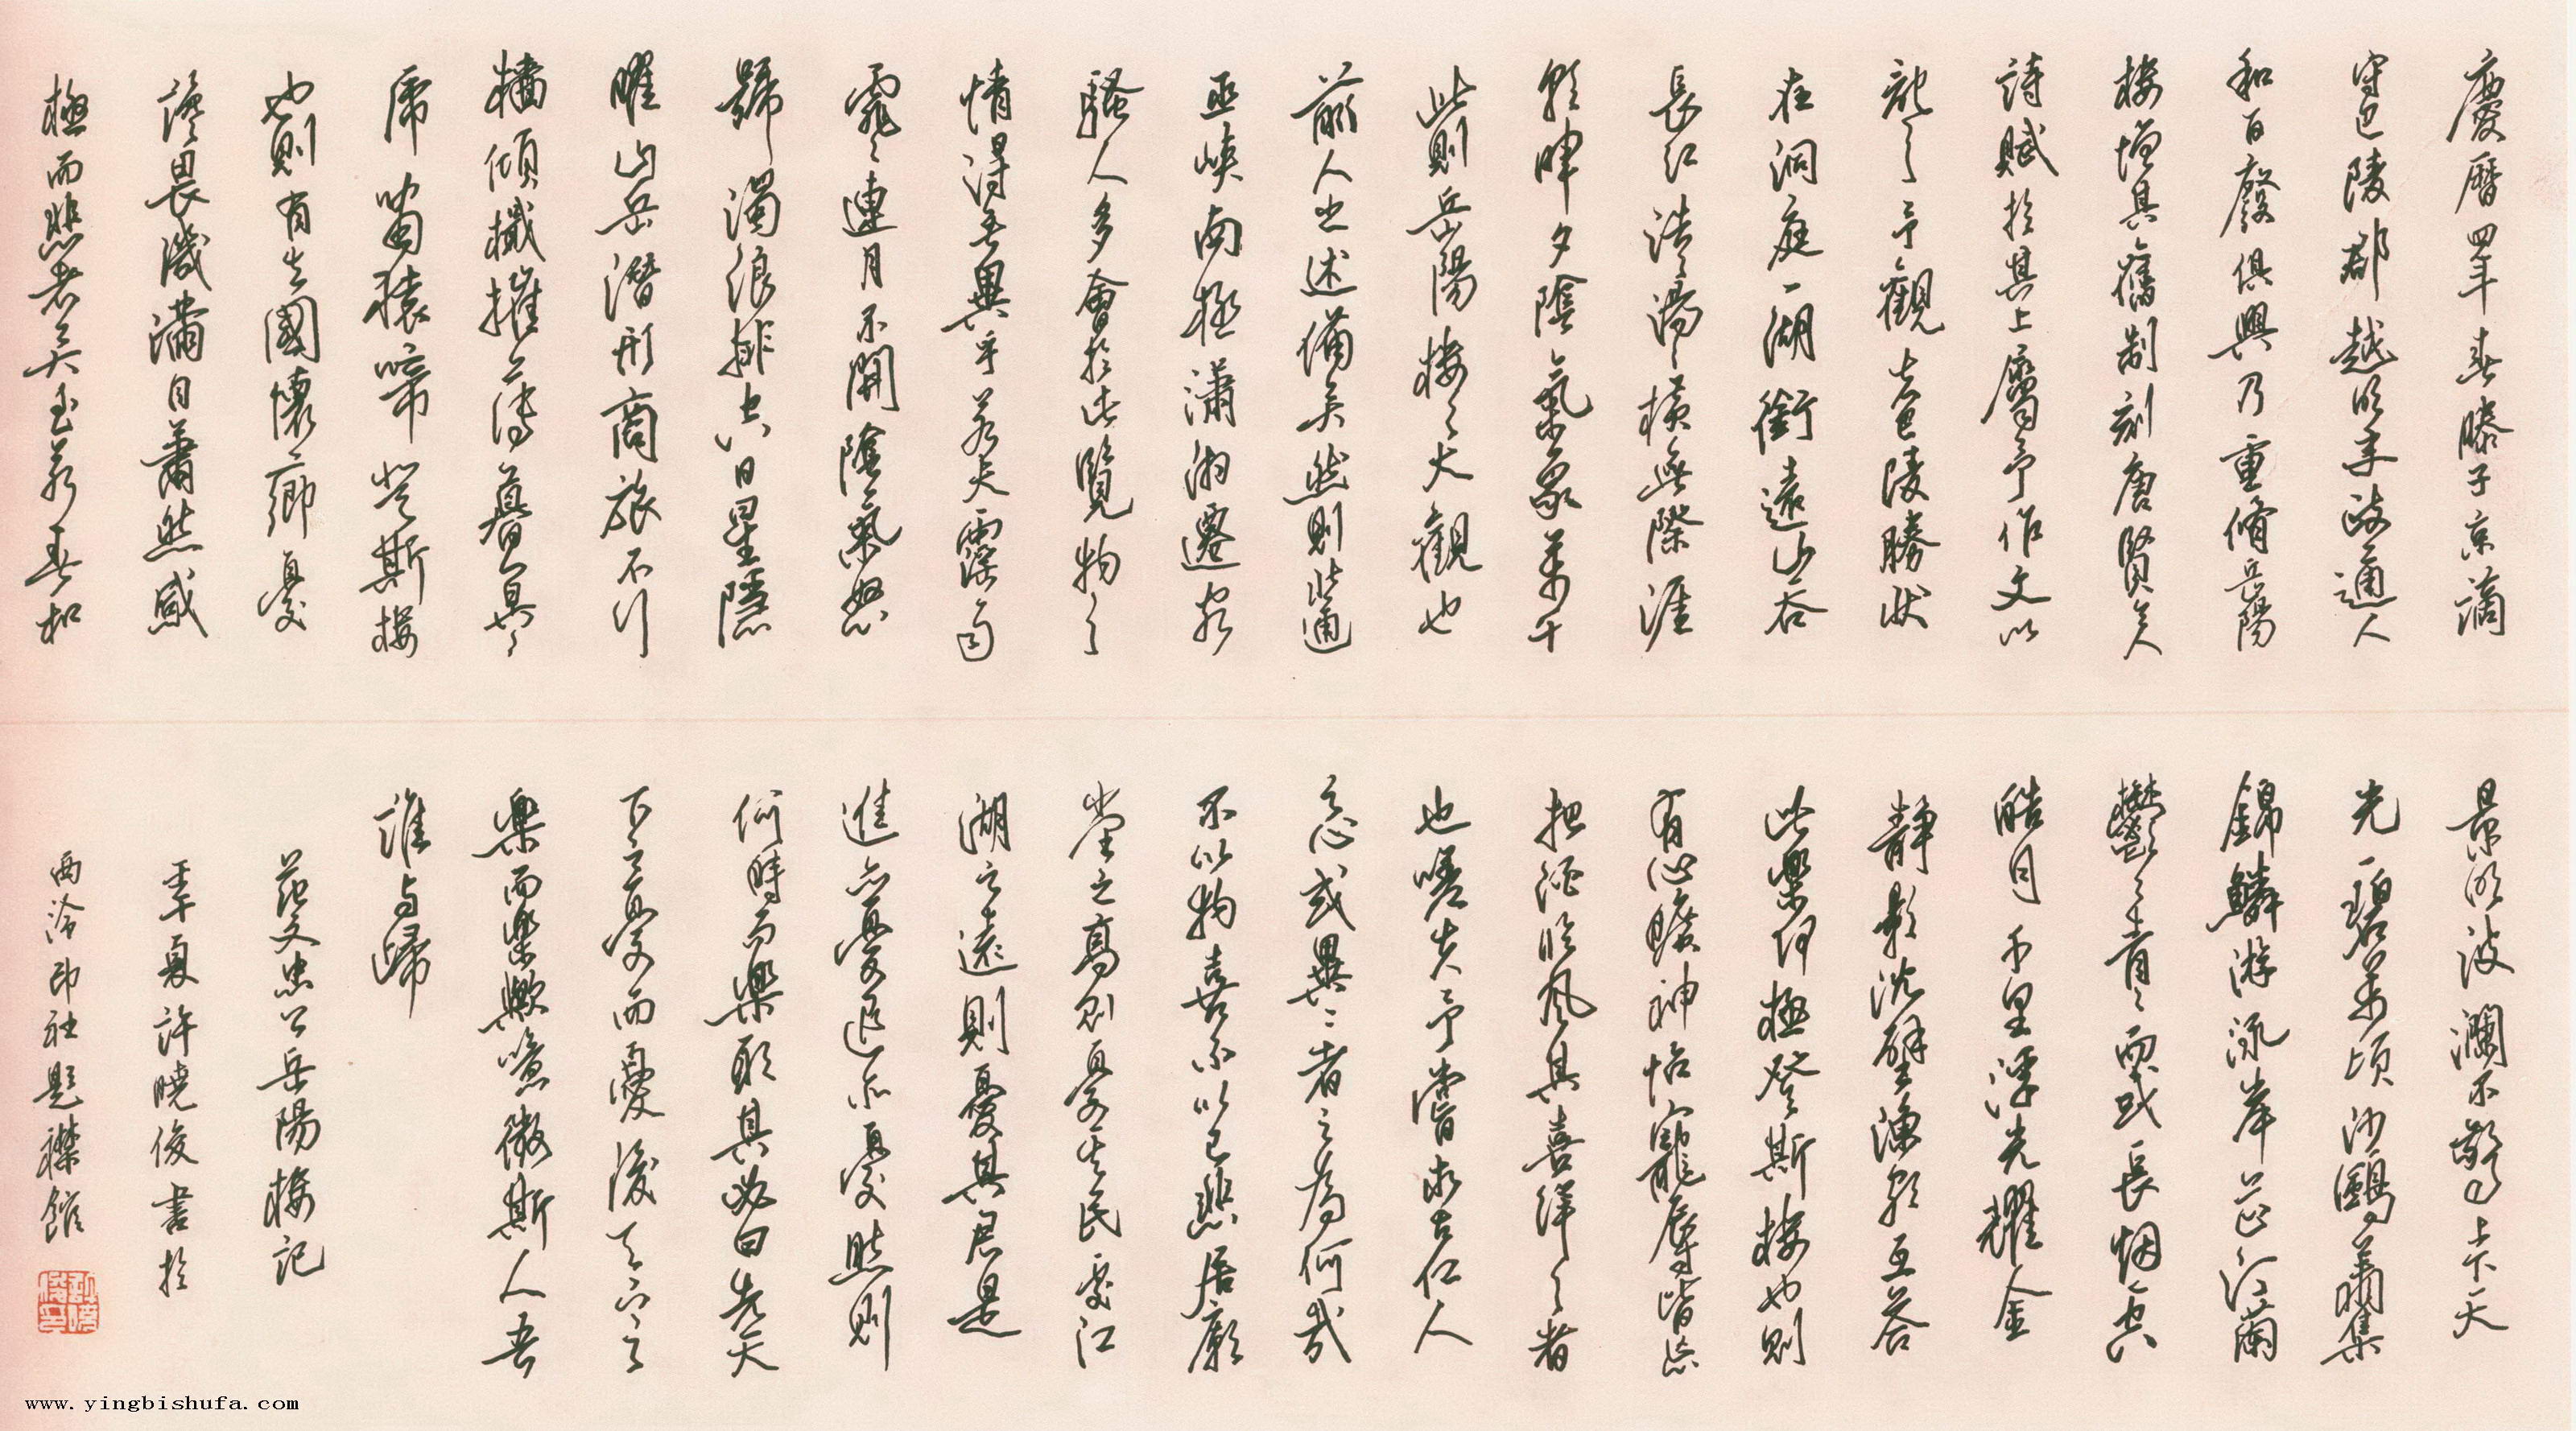 慶曆四年春滕子京謫
守巴陵郡越明年政通人
和百廢俱興乃重脩岳陽
樓增其舊制刻唐賢今人
詩賦於其上屬予作文以
記之予觀夫巴陵勝狀
在洞庭一湖銜遠山吞
長江浩浩湯湯橫無際涯
朝暉夕陰氣象萬千
此則岳陽樓之大觀也
前人之述備矣然則北通
巫峽南極瀟湘遷客
騷人多會於此覽物之
情得無異乎若夫霪雨
霏霏連月不開陰風怒
號濁浪排空日星隱
曜山岳潛形商旅不行
檣傾檝摧薄暮冥冥
虎嘯猿啼登斯樓
也則有去國懷鄉憂
讒畏譏滿目蕭然感
極而悲者矣至若春和
景明波瀾不驚上下天
光一碧萬頃沙鷗翔集
錦鱗游泳岸芷汀蘭
鬱鬱青青而或長烟一空
皓月千里浮光耀金
靜影沈璧漁歌互答
此樂何極登斯樓也則
有心曠神怡寵辱皆忘
把酒臨風其喜洋洋者
也嗟夫予嘗求古仁人
之心或異二者之為何哉
不以物喜不以己悲居廟
堂之高則憂其民處江
湖之遠則憂其君是
進亦憂退亦憂然則
何時而樂耶其必曰先天
下之憂而憂後天下之
樂而樂歟噫微斯人吾
誰與歸
范文忠公岳陽樓記
季夏許曉俊書於
西泠印社題襟館
www.yingbishufa.com